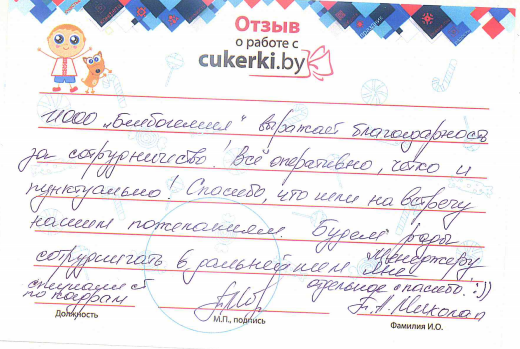 Отзыв
о работе с
cukerki.by
ИООО „ "выражает благодарность
за сотрудничество! Всё оперативно, чётко и
пунктуально! Спасибо, что шли на встречу
нашим пожеланиям. Будем рады
сотрудничать в дальнейшем. Менеджеру
Яне
отдельное спасибо :))
специалист
по кадрам
Должность
М.П., подпись
Фамилия И.О.